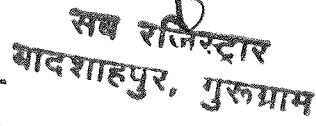 सब रजिस्ट्रार
बादशाहपुर, गुरूग्राम